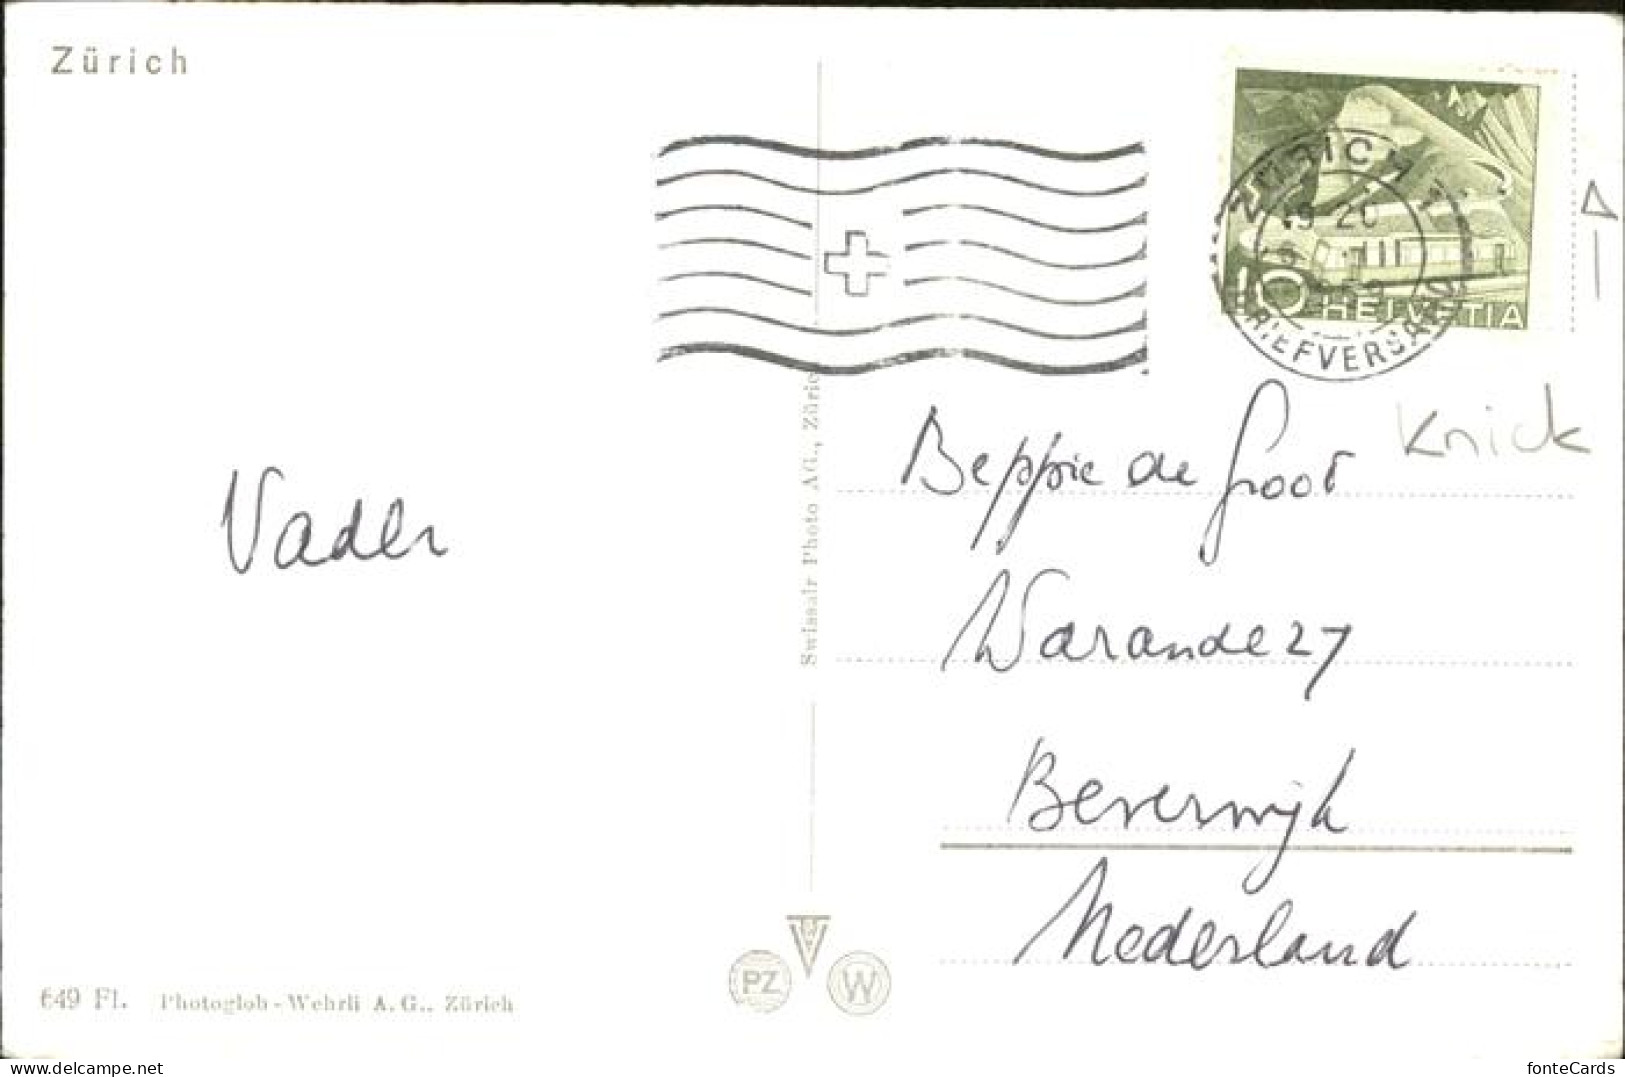 Zürich
ZÜRICH 1
19-20
BRIEFVERSAND
10 HELVETIA
Vader
Beppie de Groot
Knick
Warande 27
Beverwijk
Nederland
Swissair Photo AG., Zürich
PZ
W
649 Fl. Photoglob-Wehrli A.G., Zürich
www.delcampe.net
fonteCards